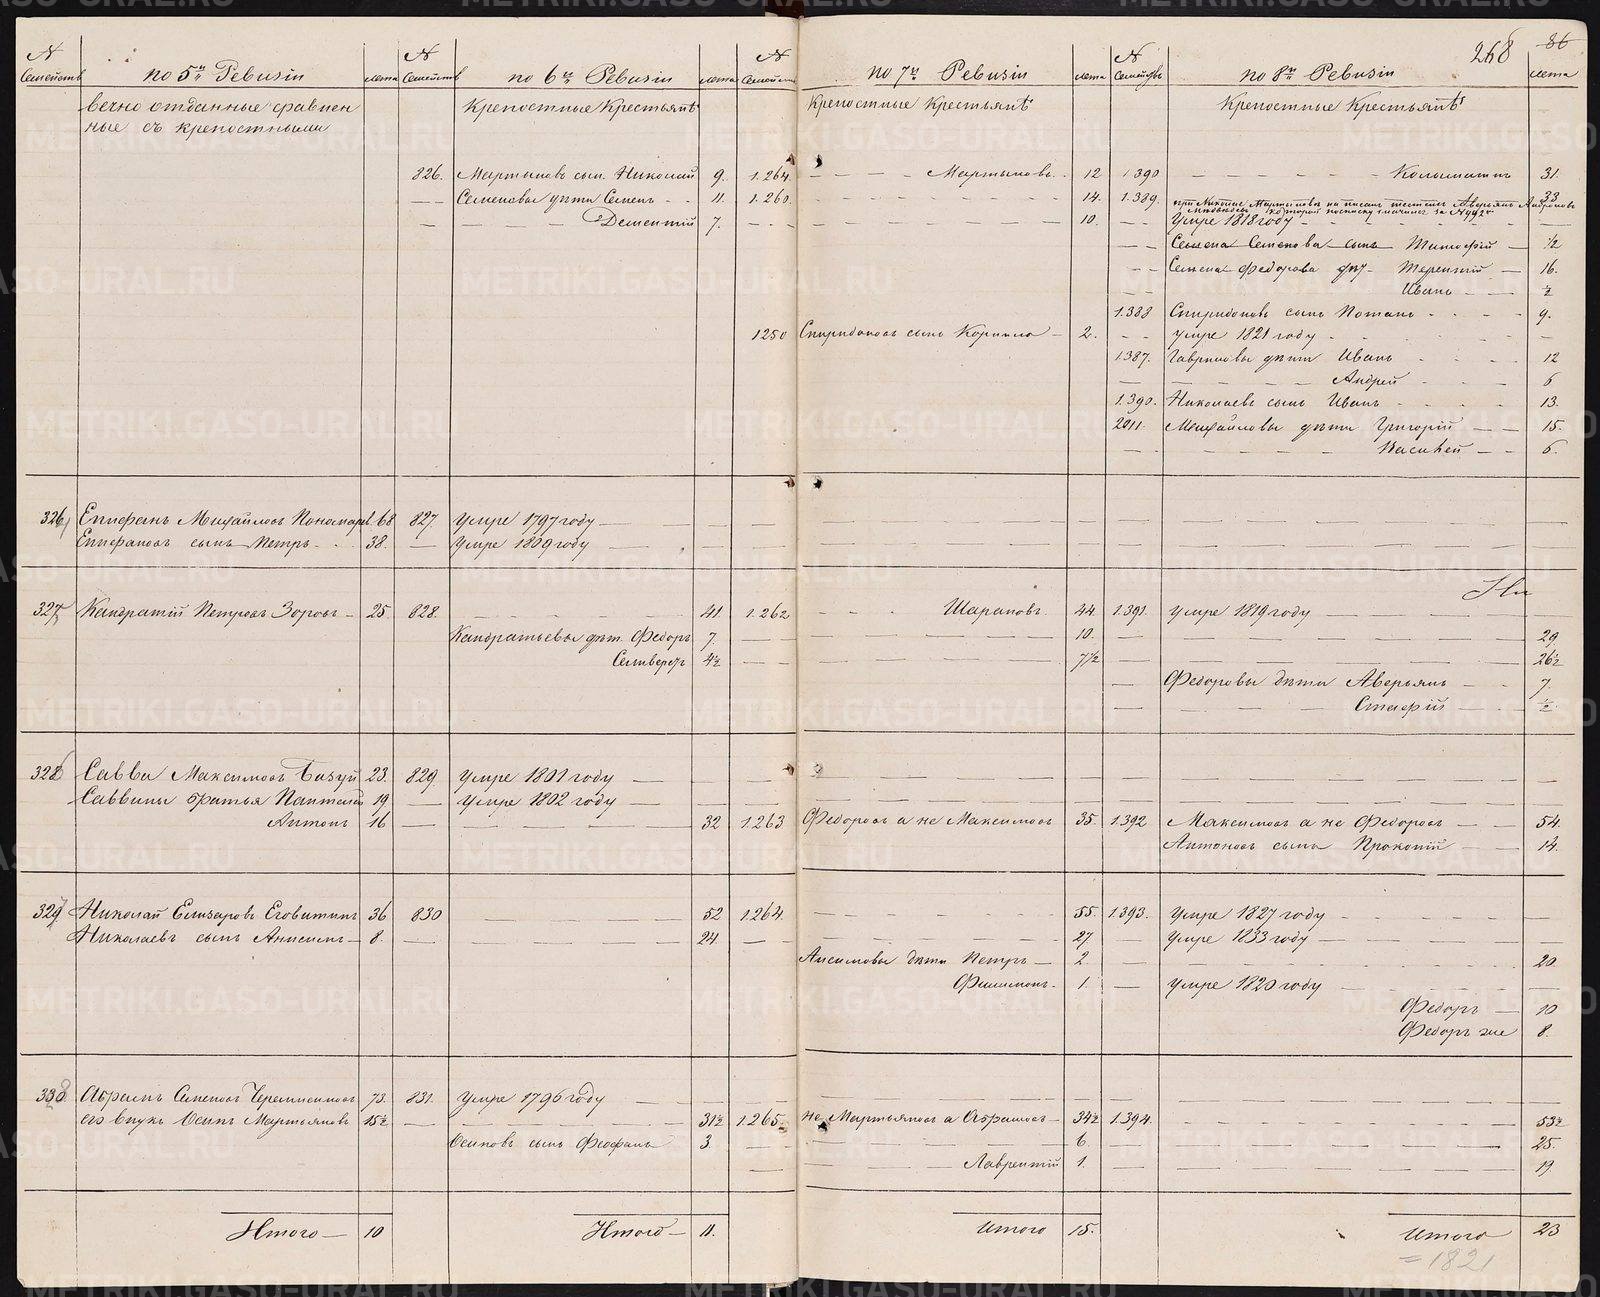 268 86
N Семействъ по 5й Ревизіи лета N Семействъ по 6й Ревизіи лета N Семейств по 7й Ревизіи лета N Семействъ по 8й Ревизіи лета
вечно отданные сравнен Крепостные Крестьянѣ Крепостные Крестьянѣ Крепостные Крестьянѣ
ные съ крепостными
826. Мартыновъ сын. Николай 9. 1.264. Мартыновъ 12 1390 31.
Семеновы дѣти Семенъ 11. 1.260. 14. 1.389. 33
Дементій 7. 10. Умре 1818 году
Семена Семенова сынъ Тимофей 1/2
Семена Федорова дѣт Терентій 16.
Иванъ 1/2
1.388 Спиридоновъ сынъ Потапъ 9.
1250 Спиридоновъ сынъ Корнило 2. умре 1821 году
1387. Гавриловы дѣти Иванъ 12
Андрей 6
1.390. Николаевъ сынъ Иванъ 13.
2011. Михайловы дѣти Григорій 15.
Василей 6.
326 Епифанъ Михайловъ Пономарев 68 827. Умре 1797 году
Епифановъ сынъ Петръ 38. Умре 1809 году
327 Кандратій Петровъ Зоровъ 25 828. 41 1.262 Шараповъ 44 1.391. умре 1819 году
Кандратьевы дѣт. Федоръ 7 10. 29
Селиверстъ 4 1/2 7 1/2 26 1/2
Федоровы дѣти Аверьянъ 7.
1/2
328 Савва Максимовъ 23. 829. умре 1801 году
Саввины братья Пантелей 19 умре 1802 году
Антонъ 16 32 1.263 Федоровъ а не Максимовъ 35. 1.392 Максимовъ а не Федоровъ 54.
Антоновъ сынъ Прокопій 14.
329 Николай Елизаровъ Еговитинъ 36 830 52 1.264. 55. 1.393. умре 1827 году
Николаевъ сынъ Анисимъ 8. 24 27 Умре 1833 году
Анисимовы дѣти Петръ 2. 20
Филимонъ 1. Умре 1820 году
Федоръ 10
Федоръ же 8.
330 Абрамъ Семеновъ Черемисиновъ 73. 831. умре 1796 году
его внукъ Осипъ Мартьяновъ 15 1/2 31 1/2 1.265. не Мартьяновъ а Абрамовъ 34 1/2 1.394. 53 1/2
Осиповъ сынъ Феофанъ 3 6. 25.
Лаврентій 1. 19
Итого 10 Итого 11. Итого 15. Итого 23
=1821
METRIKI.GASO-URAL.RU